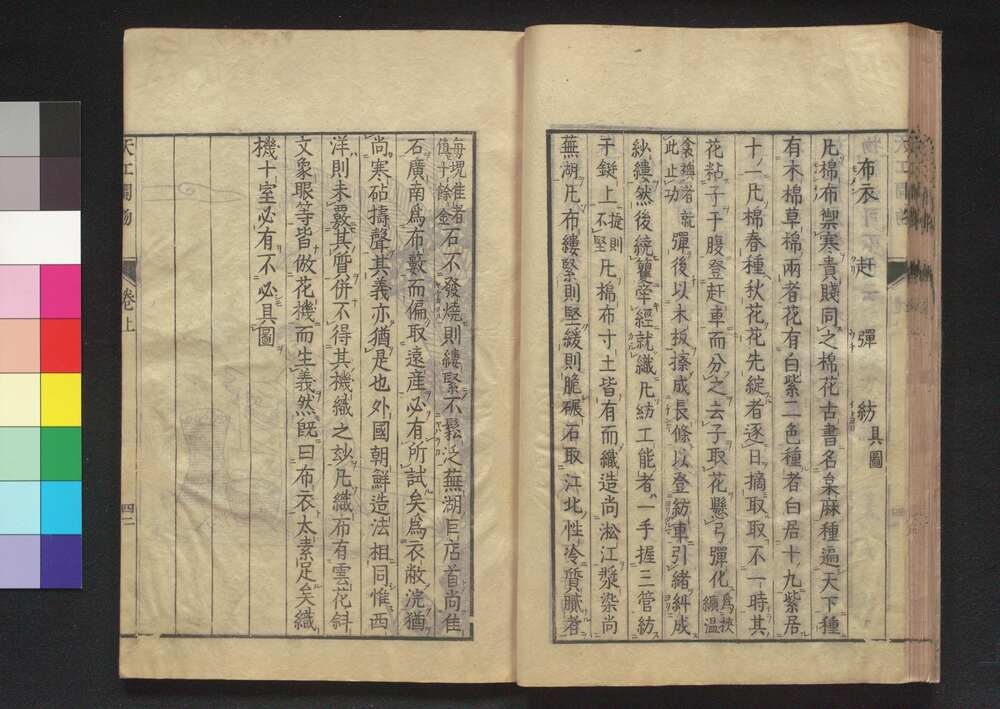 布衣　赶　彈　紡具圖
凡棉布禦寒貴賤同之棉花古書名枲麻種遍天下種
有木棉草棉兩者花有白紫二色種者白居十九紫居
十一凡棉春種秋花花先綻者逐日摘取取不一時其
花粘子于腹登赶車而分之去子取花懸弓彈化爲挾纊溫
衾襖者就此止功彈後以木扳擦成長條以登紡車引緒糾成
紗縷然後繞籰牽經就織凡紡工能者一手握三管紡
于鋌上捷則不堅凡棉布寸土皆有而織造尚淞江漿染尚
蕪湖凡布縷緊則堅緩則脆碾石取江北性冷質膩者
每塊佳者値十餘金石不發燒則縷緊不鬆泛蕪湖巨店首尚佳
石廣南爲布藪而偏取遠産必有所試矣爲衣敝浣猶
尚寒砧擣聲其義亦猶是也外國朝鮮造法相同惟西
洋則未覈其質併不得其機織之玅凡織布有雲花斜
文象眼等皆倣花機而生義然既曰布衣太素足矣織
機十室必有不必具圖
天工開物
卷上
四二